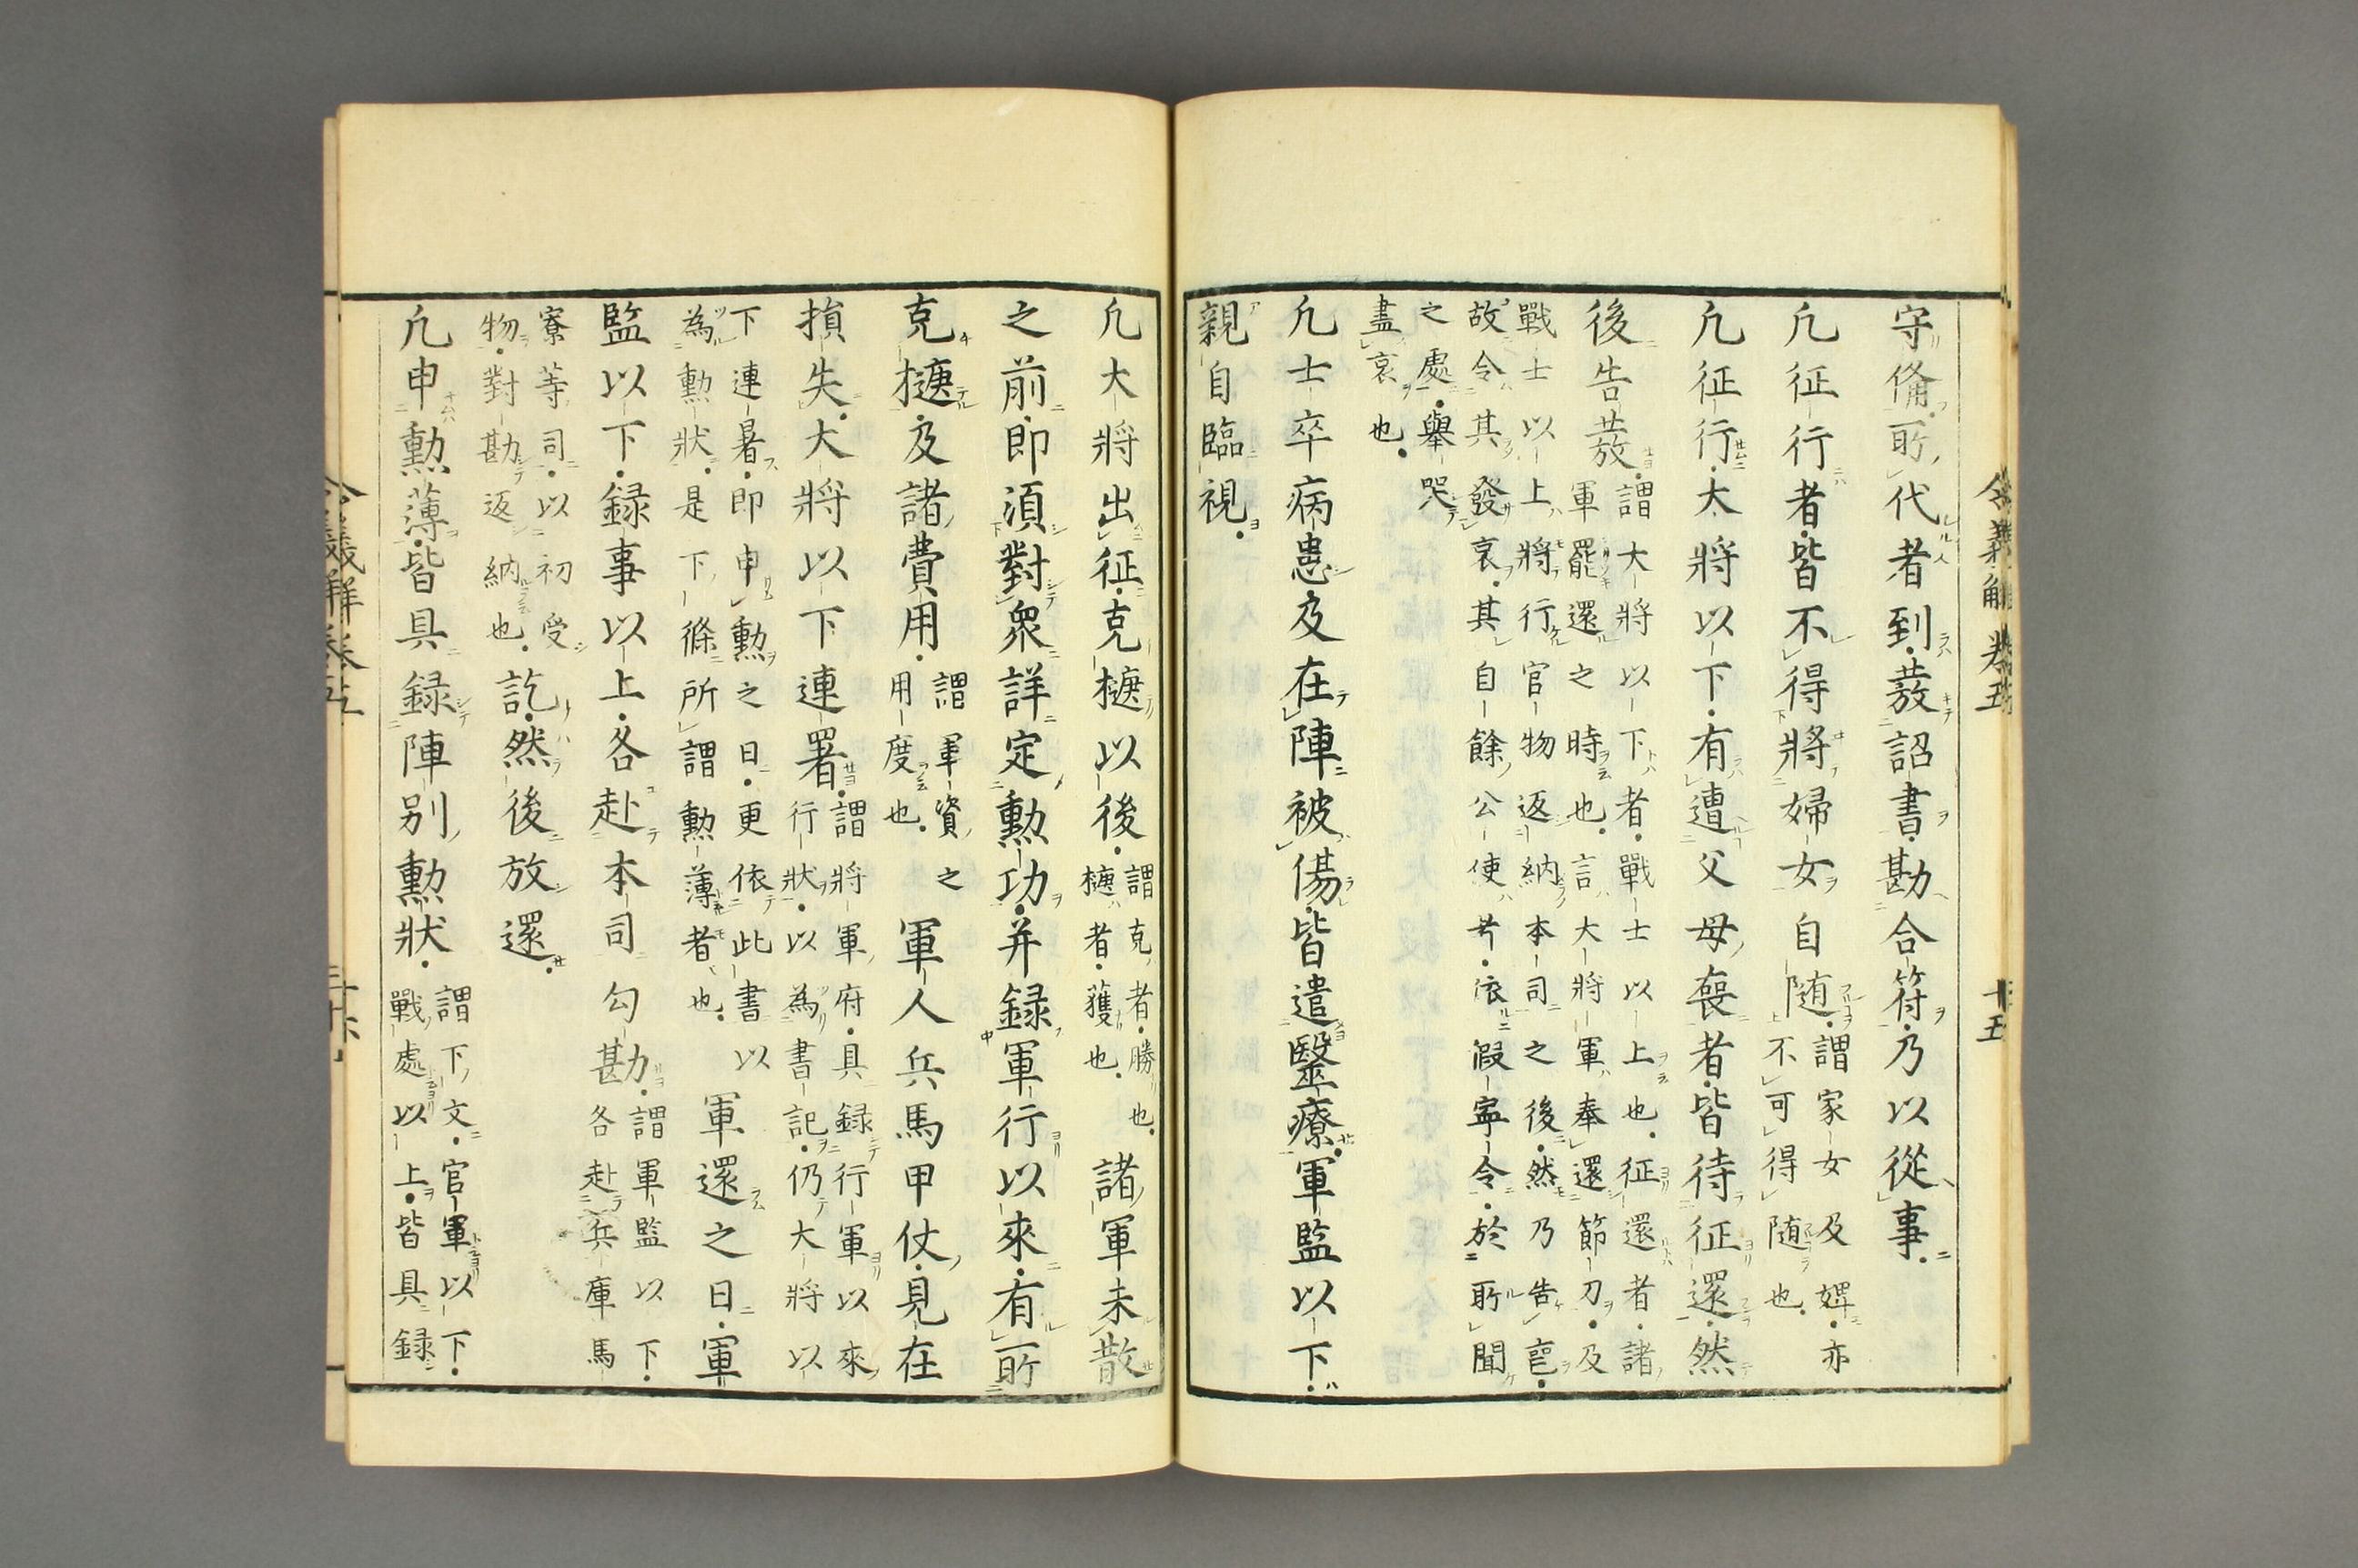 令義解 卷五 十五
守俻所代者到・發詔書・勘合符・乃以從事・
凢征行者・皆不得將婦女自隨・謂家女及婢・亦
不可得隨也・
凢征行・大將以下・有遭父母喪者・皆待征還・然
後告發・謂大將以下者・戰士以上也・征還者・諸
軍罷還之時也・言大將軍奉還節刀・及
戰士以上・將行官物返納本司之後・然乃告䘮・
故令其發哀・其自餘公使等・依假寧令・於所聞
之處・舉哭
盡哀也・
凢士卒病患及在陣被傷・皆遣醫療・軍監以下・
親自臨視・
凢大將出征・克捷以後・謂克者・勝也・
捷者・獲也・諸軍未散
之前・即須對衆詳定勲功・并録軍行以來・有所
克捷・及諸費用・謂軍資之
用度也・軍人兵馬甲仗・見在
損失・大將以下連署・謂將軍府・具録行軍以來
行狀・以為書記・仍大將以
下連署・即申勲之日・更依此書以
為勲狀・是下條所謂勲薄者也・軍還之日・軍
監以下・録事以上・各赴本司勾勘・謂軍監以下・
各赴兵庫馬
寮等司・以初受
物・對勘返納也・訖・然後放還・
凢申勲薄・皆具録陣別勲狀・謂下文・官軍以下・
戰處以上・皆具録
令義解卷五